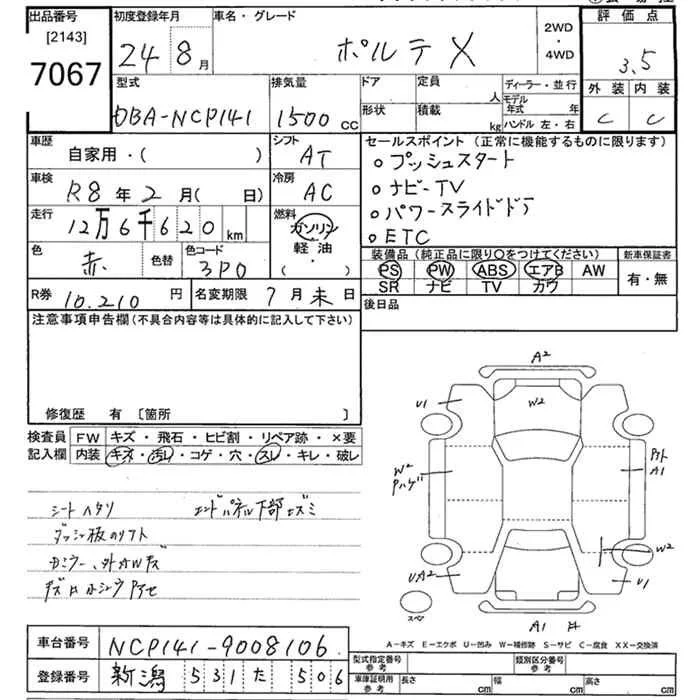 出品番号
[2143]
7067
初度登録年月
24 8月
車名・グレード
ポルテ X
2WD
・
4WD
評価点
3.5
外装 内装
C C
型式
DBA-NCP141
排気量
1500 cc
ドア
形状
定員 人
積載 kg
ディーラー・並行
モデル年式 年
ハンドル 左・右
車歴
自家用・( )
シフト
AT
車検
R8年2月( 日)
冷房
AC
走行
12万6千620 km
燃料
ガソリン
軽油
( ・ )
色
赤
色替
色コード
3P0
R券 10.210 円
名変期限 7月末日
セールスポイント(正常に機能するものに限ります)
○プッシュスタート
○ナビーTV
○パワースライドドア
○ETC
装備品(純正品に限り○をつけてください)
PS PW ABS エアB AW
SR ナビ TV カワ
新車保証書
有・無
後日品
注意事項申告欄(不具合内容等は具体的に記入して下さい)
修復歴 有 [箇所 ]
検査員記入欄
FW キズ・飛石・ヒビ割・リペア跡・×要
内装 キズ・汚レ・コゲ・穴・スレ・キレ・破レ
シートヘタリ
エンドパネル下部エズミ
ダッシュ板のリフト
A2
U1
W2
W2
Pハゲ
A1
W2
UA2
U1
A1
スペア
A-キズ E-エクボ U-凹み W-補修跡 S-サビ C-腐食 XX-交換済
車台番号 NCP141-9008106
登録番号 新潟 531 た 506
型式指定番号 参考
類別区分番号 参考
車庫証明用 参考
長さ cm 幅 cm 高さ cm